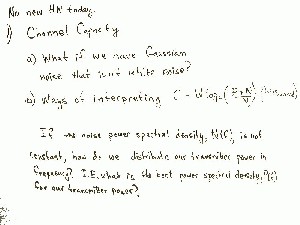 No new HW today.
1) Channel Capacity
a) What if we have Gaussian
noise that isn't white noise?
b) Ways of interpreting C = W log₂(P+N/N)
If the noise power spectral density, N(f), is not
constant, how do we distribute our transmitter power in
frequency? I.E. what is the best power spectral density, P(f)
for our transmitter power?